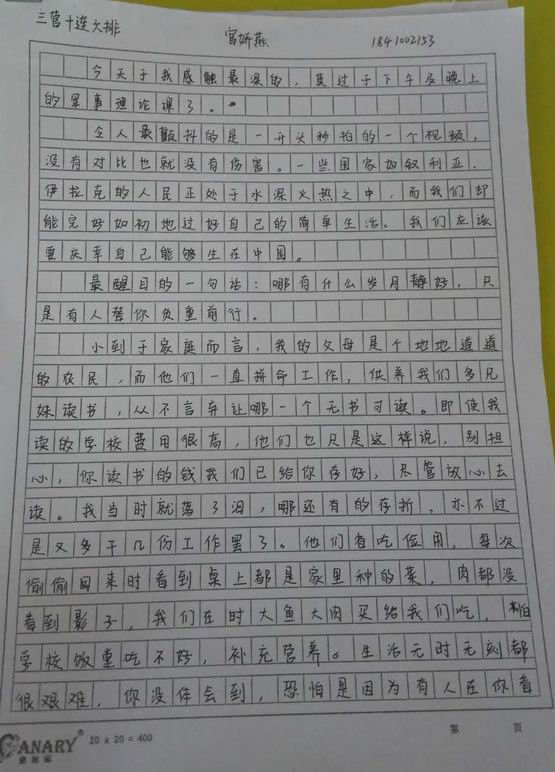 三营十连六排
宫妍燕
1841002153
今天于我感触最深的，莫过于下午及晚上
的军事理论课了。
令人最颤抖的是一开头秒拍的一个视频，
没有对比也就没有伤害。一些国家如叙利亚、
伊拉克的人民正处于水深火热之中，而我们却
能完好如初地过好自己的简单生活。我们应该
要庆幸自己能够生在中国。
最醒目的一句话：哪有什么岁月静好，只
是有人替你负重前行。
小到于家庭而言，我的父母是个地地道道
的农民，而他们一直拼命工作，供养我们多兄
妹读书，从不言弃让哪一个无书可读。即使我
读的学校费用很高，他们也只是这样说，别担
心，你读书的钱我们已给你存好，尽管放心去
读。我当时就落了泪，哪还有的存折，亦不过
是又多干几份工作罢了。他们省吃俭用，每次
偷偷回来时看到桌上都是家里种的菜，肉都没
看到影子，我们在时大鱼大肉买给我们吃，怕
学校饭堂吃不好，补充营养。生活无时无刻都
很艰难，你没体会到，恐怕是因为有人在你看
CANARY
20 x 20 = 400
第 页